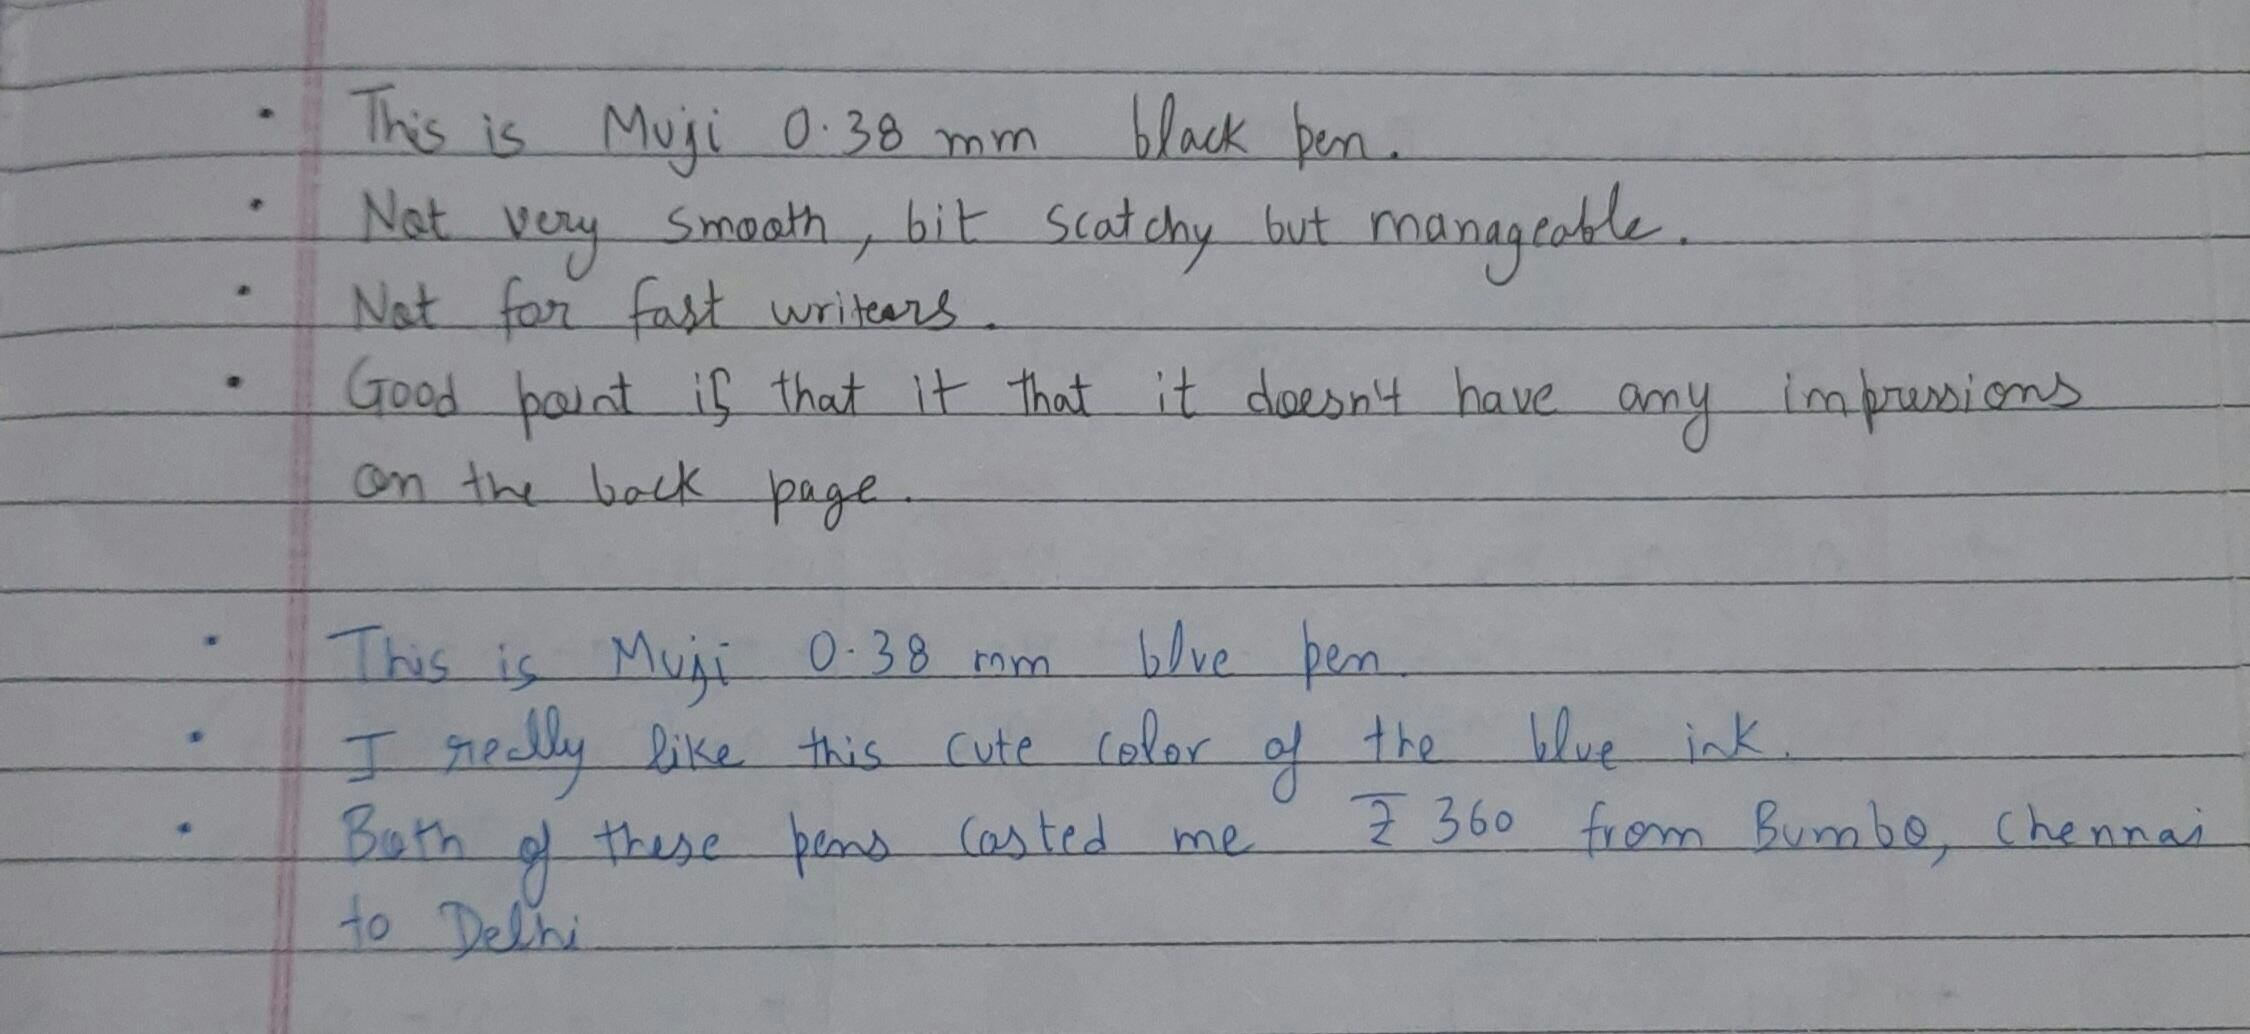 • This is Muji 0.38 mm black pen.
• Not very smooth, bit scatchy but manageable.
• Not for fast writers.
• Good point is that it that it doesn't have any impressions
on the back page.
• This is Muji 0.38 mm blue pen.
• I really like this cute color of the blue ink.
• Both of these pens costed me ₹ 360 from Bumbo, Chennai
to Delhi